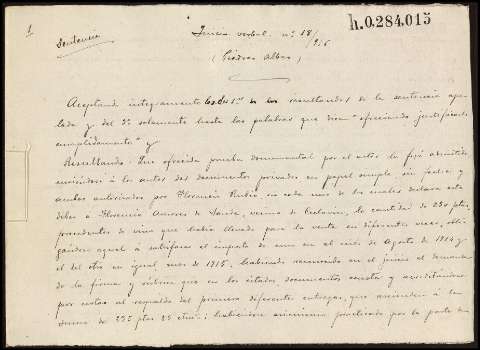 1
h.0.284,015
Sentencia
Juicio verbal. nº 18/
916
(Piedras Albas)
Aceptando integramente los dos 1os de los resultandos de la sentencia ape-
lada y del 3º solamente hasta las palabras que dicen "ofreciendo justificarlo
cumplidamente" y
Resultando: Que ofrecida prueba documental por el actor le fué admitida
uniéndose á los autos dos documentos privados en papel simple, sin fecha y
ambos autorizados por Florencio Rubio, en cada uno de los cuales declara este
deber á Florencio Amores de Sande, vecino de Ceclavin, la cantidad de 250 ptas,
procedentes de vino que habia llevado para la venta en diferentes veces, obli-
gándose aquel á satisfacer el importe de uno en el mes de Agosto de 1914 y
el del otro en igual mes de 1915, habiendo reconocido en el juicio el demanda-
do la firma y rúbrica que en los citados documentos consta y acreditándose
por notas al respaldo del primero diferentes entregas, que ascienden á la
suma de 235 ptas 25 ctms; habiéndose asimismo practicado por la parte de